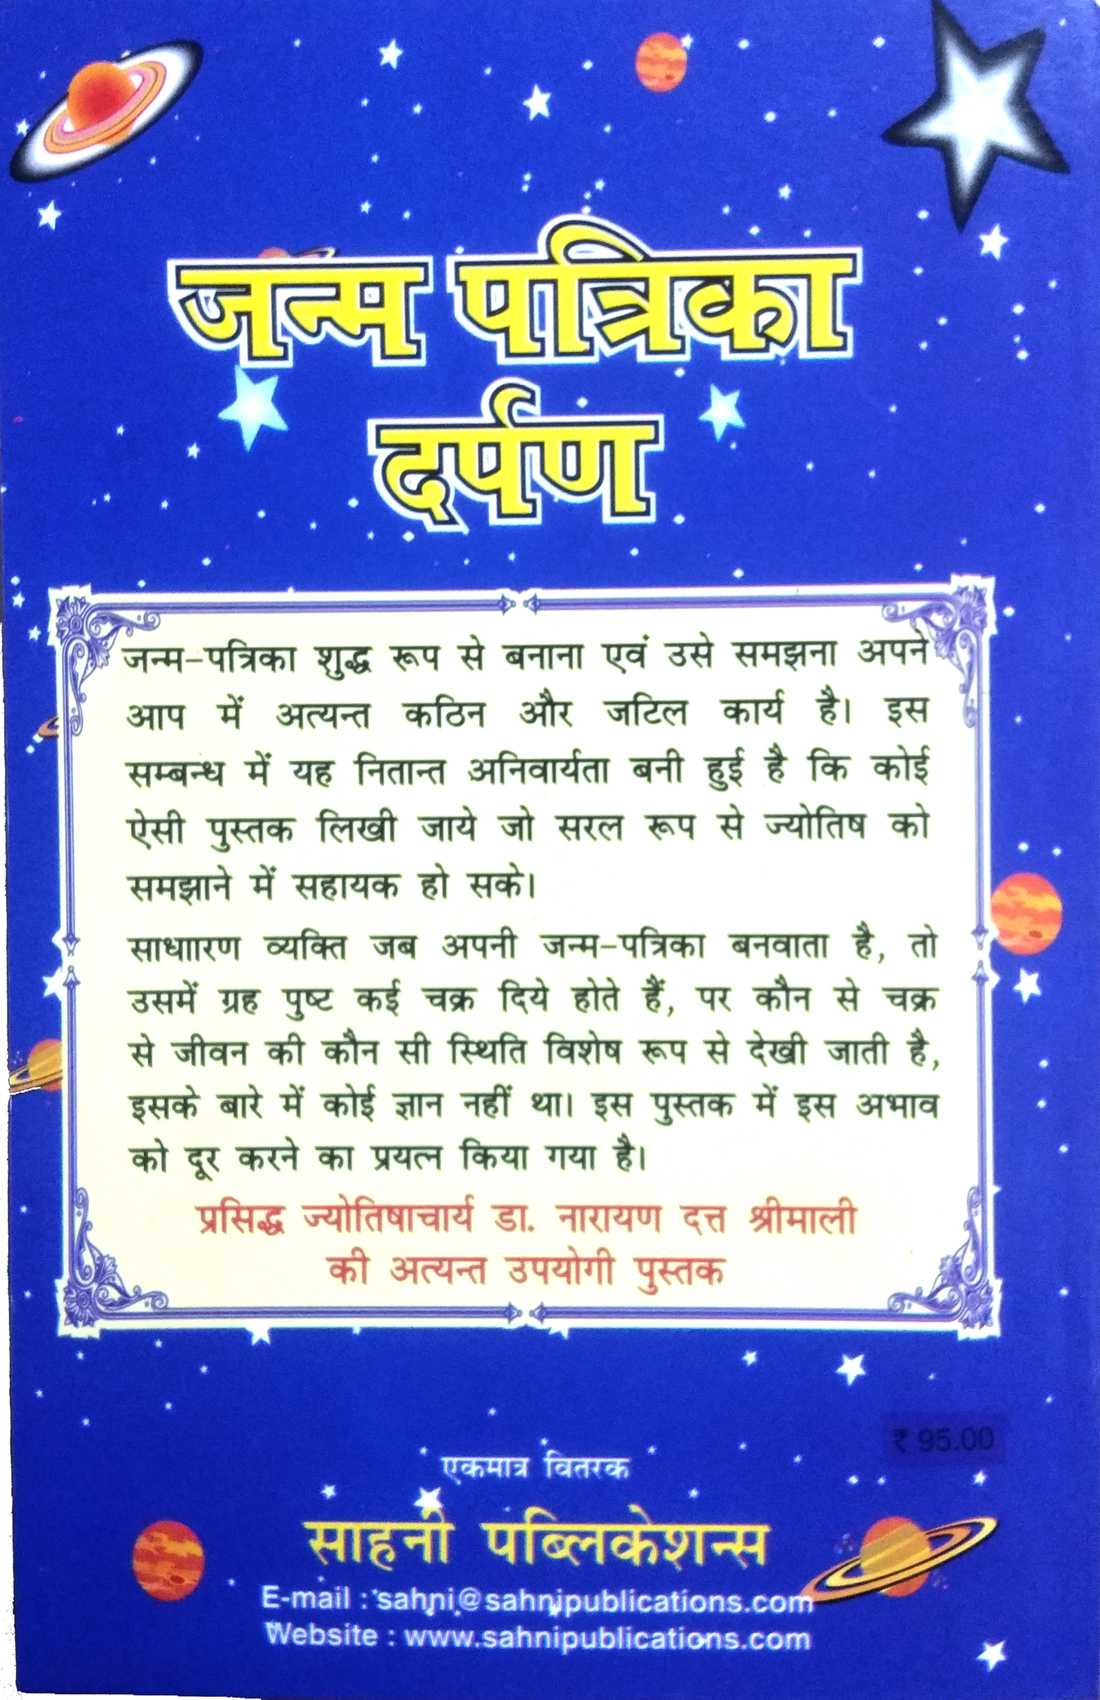 जन्म पत्रिका
दर्पण
जन्म-पत्रिका शुद्ध रूप से बनाना एवं उसे समझना अपने
आप में अत्यन्त कठिन और जटिल कार्य है। इस
सम्बन्ध में यह नितान्त अनिवार्यता बनी हुई है कि कोई
ऐसी पुस्तक लिखी जाये जो सरल रूप से ज्योतिष को
समझाने में सहायक हो सके।
साधाारण व्यक्ति जब अपनी जन्म-पत्रिका बनवाता है, तो
उसमें ग्रह पुष्ट कई चक्र दिये होते हैं, पर कौन से चक्र
से जीवन की कौन सी स्थिति विशेष रूप से देखी जाती है,
इसके बारे में कोई ज्ञान नहीं था। इस पुस्तक में इस अभाव
को दूर करने का प्रयत्न किया गया है।
प्रसिद्ध ज्योतिषाचार्य डा. नारायण दत्त श्रीमाली
की अत्यन्त उपयोगी पुस्तक
₹ 95.00
एकमात्र वितरक
साहनी पब्लिकेशन्स
E-mail : sahni@sahnipublications.com
Website : www.sahnipublications.com